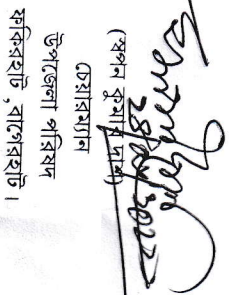 (স্বপন কুমার দাশ)
চেয়ারম্যান
উপজেলা পরিষদ
ফকিরহাট, বাগেরহাট।